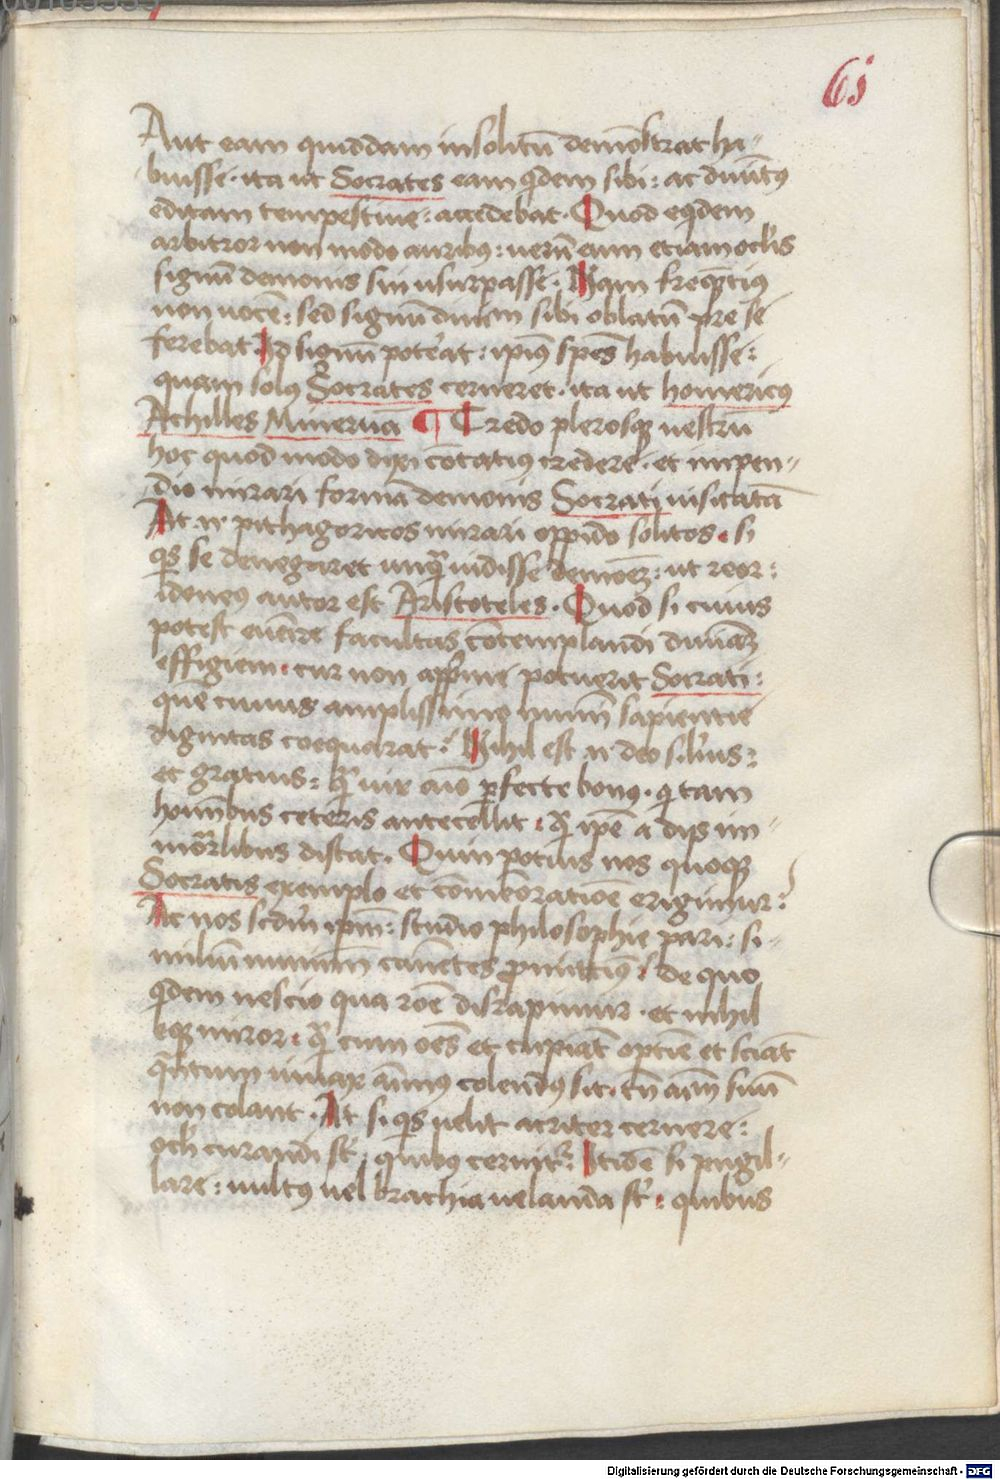 61
Aut eam quiddam insolitū demōstrat ha-
buisse · ita ut Socrates eam qdem sibi : ac diuītus
editam tempestiue : accedebat · Quod eqdem
arbitror non modo auribus : uerū eum etiam oclis
signū demonis sui usurpasse · Nam frequētius
non uocē : sed signū diuinum sibi oblatū pre se
ferebat Id signum poterat : ipius spēs habuisse :
quam solus Socrates cerneret · ita ut homericus
Achilles Mineruā ¶ Credo plerosque uestrū
hoc quod modo dixi cōtatius credere · et inpen-
dio mirari formā demonis Socrati uisitatā
At n pithagoricos mirari oppido solitos · si
qs se denegaret unquā uidisse demonem : ut reor :
idoneus autor est Aristoteles · Quod si cuiuis
potest euēire facultas cōtemplandi diuinam
effigiem · cur non apprime potuerit Socrati :
quē cuiuis amplissimo numīi sapientie
dignitas coequarat ? Nihil est n deo silius :
et gratius : quā uir aīo perfecte bonus · qui tam
hominibus ceteris antecellit · quā ipē a dijs im-
mortalibus distat · Quin potius nos quoque
Socratis exemplo et cōmemoratiōe erigimur ?
Ac nos scdm ipm : studio philosophie pari : si-
milium numinum cauētes promittimus ? de quo
qdem nescio qua roē disrapimur · et nihil
eque miror · quā cum oēs et cupiāt optime et sciāt
 animus colendus sit · tn aīm suū
non colant · At si qs uelit acriter cernere :
ocli curandi sūt : quibus cernitur Itidē si pugil-
lare : uultus uel brachia uelanda sūt · quibus
Digitalisierung gefördert durch die Deutsche Forschungsgemeinschaft - DFG